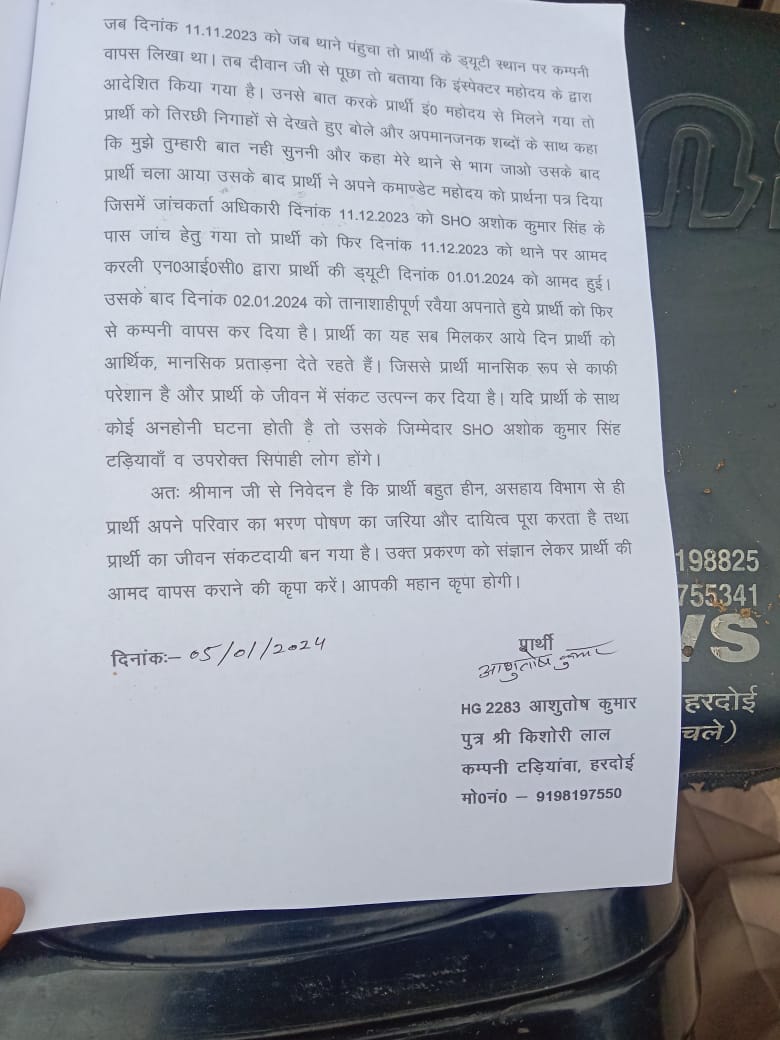 जब दिनांक 11.11.2023 को जब थाने पंहुचा तो प्रार्थी के ड्यूटी स्थान पर कम्पनी
वापस लिखा था। तब दीवान जी से पूछा तो बताया कि इंस्पेक्टर महोदय के द्वारा
आदेशित किया गया है। उनसे बात करके प्रार्थी इं0 महोदय से मिलने गया तो
प्रार्थी को तिरछी निगाहों से देखते हुए बोले और अपमानजनक शब्दों के साथ कहा
कि मुझे तुम्हारी बात नही सुननी और कहा मेरे थाने से भाग जाओ उसके बाद
प्रार्थी चला आया उसके बाद प्रार्थी ने अपने कमाण्डेट महोदय को प्रार्थना पत्र दिया
जिसमें जांचकर्ता अधिकारी दिनांक 11.12.2023 को SHO अशोक कुमार सिंह के
पास जांच हेतु गया तो प्रार्थी को फिर दिनांक 11.12.2023 को थाने पर आमद
करली एन0आई0सी0 द्वारा प्रार्थी की ड्यूटी दिनांक 01.01.2024 को आमद हुई।
उसके बाद दिनांक 02.01.2024 को तानाशाहीपूर्ण रवैया अपनाते हुये प्रार्थी को फिर
से कम्पनी वापस कर दिया है। प्रार्थी का यह सब मिलकर आये दिन प्रार्थी को
आर्थिक, मानसिक प्रताड़ना देते रहते हैं। जिससे प्रार्थी मानसिक रूप से काफी
परेशान है और प्रार्थी के जीवन में संकट उत्पन्न कर दिया है। यदि प्रार्थी के साथ
कोई अनहोनी घटना होती है तो उसके जिम्मेदार SHO अशोक कुमार सिंह
टड़ियावाँ व उपरोक्त सिपाही लोग होंगे।
अतः श्रीमान जी से निवेदन है कि प्रार्थी बहुत हीन, असहाय विभाग से ही
प्रार्थी अपने परिवार का भरण पोषण का जरिया और दायित्व पूरा करता है तथा
प्रार्थी का जीवन संकटदायी बन गया है। उक्त प्रकरण को संज्ञान लेकर प्रार्थी की
आमद वापस कराने की कृपा करें। आपकी महान कृपा होगी।
दिनांकः– 05/01/2024
प्रार्थी
आशुतोष कुमार
HG 2283 आशुतोष कुमार
पुत्र श्री किशोरी लाल
कम्पनी टड़ियांवा, हरदोई
मो0नं0 – 9198197550
198825
755341
VS
हरदोई
चले)